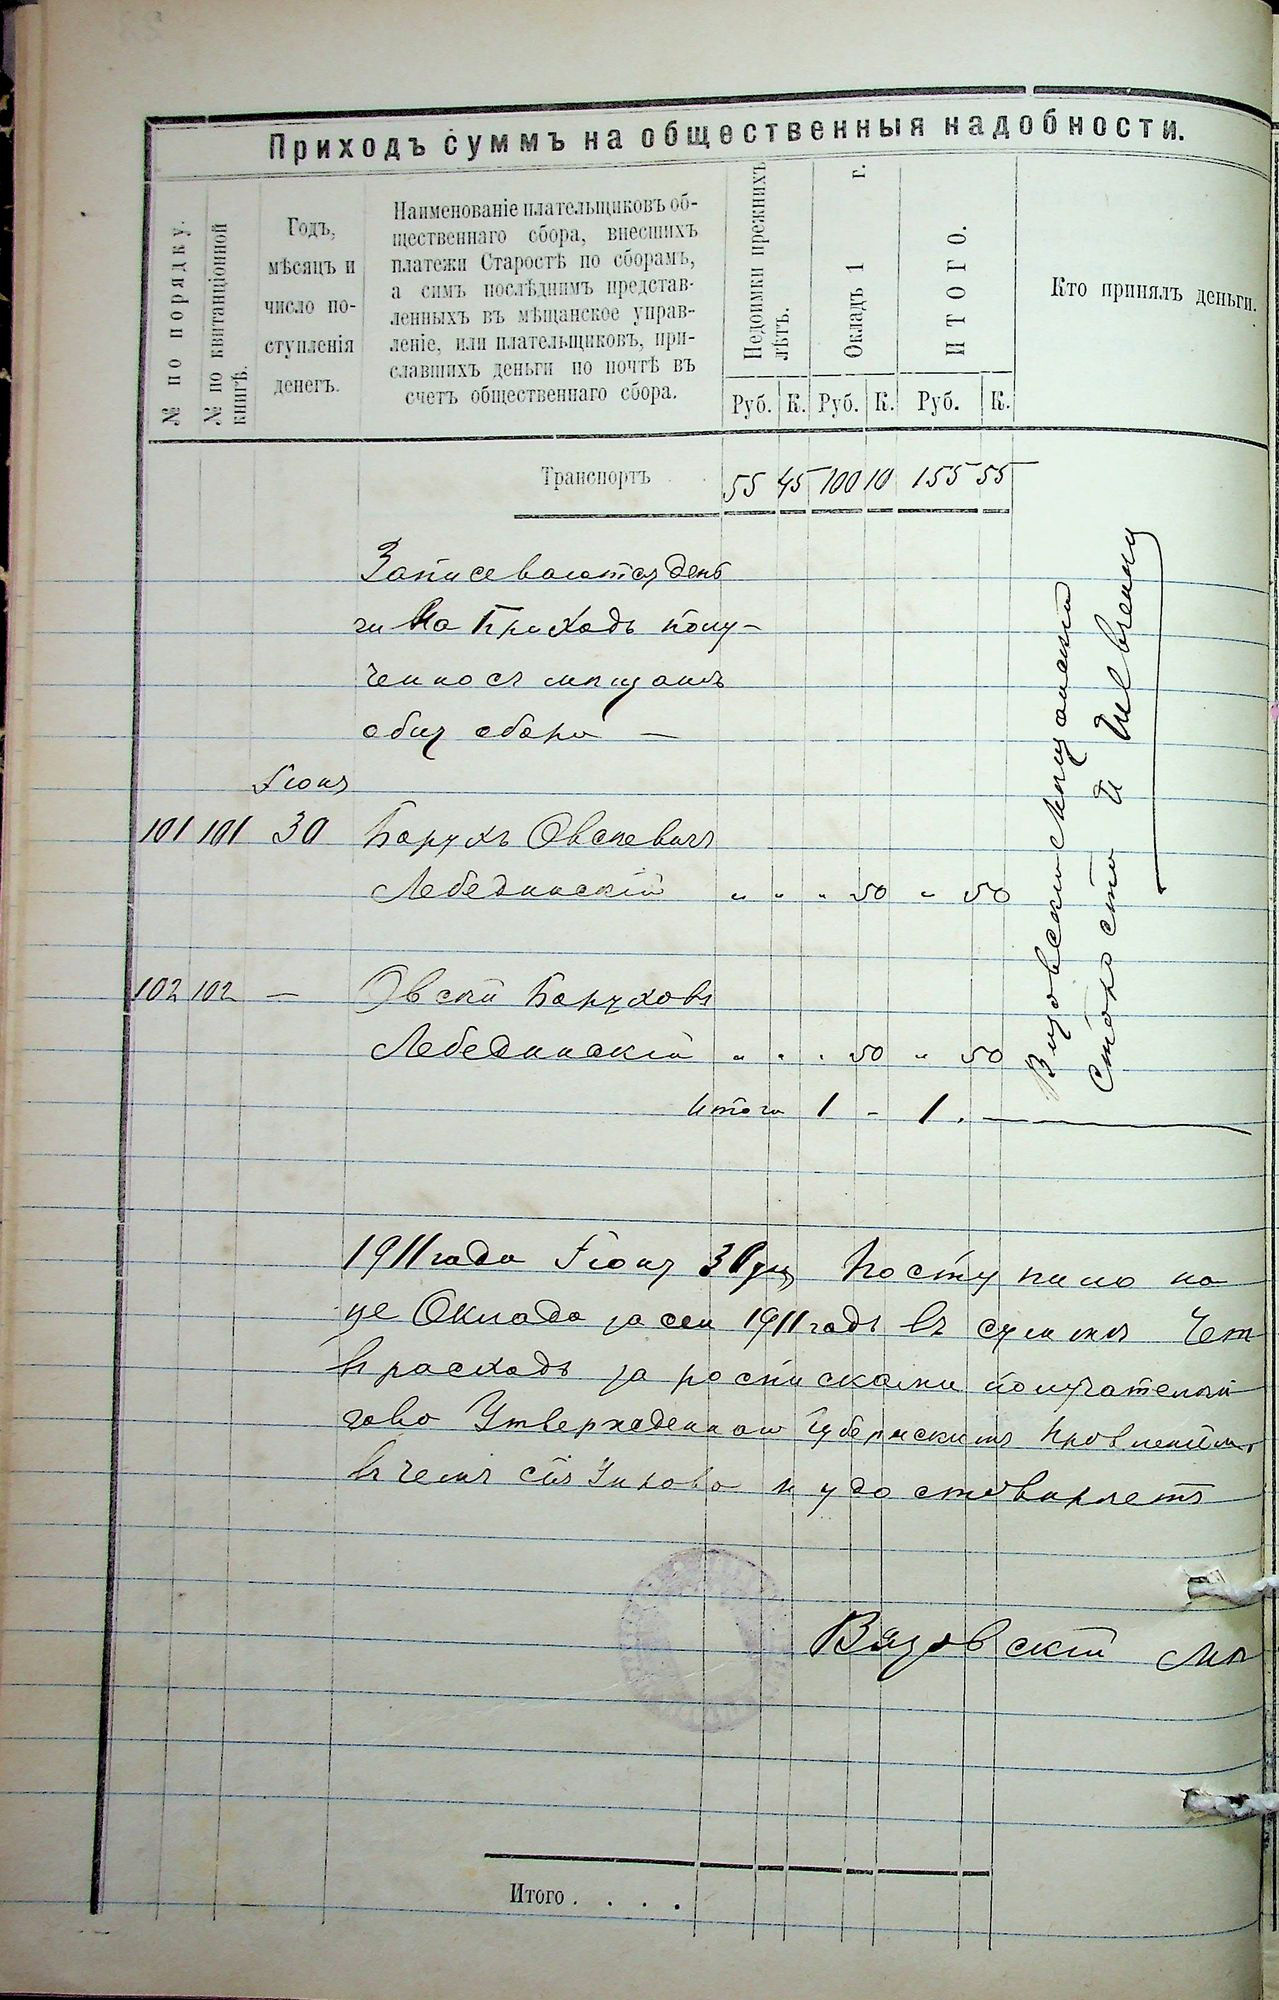 Приходъ суммъ на общественныя надобности.
№ по порядку.
№ по квитанціонной
книгѣ.
Годъ,
мѣсяцъ и
число по-
ступленія
денегъ.
Наименованіе плательщиковъ об-
щественнаго сбора, внесшихъ
платежи Старостѣ по сборамъ,
а симъ послѣднимъ представ-
ленныхъ въ мѣщанское управ-
леніе, или плательщиковъ, при-
славшихъ деньги по почтѣ въ
счетъ общественнаго сбора.
Недоимки прежнихъ
лѣтъ.
Окладъ 1 г.
ИТОГО.
Кто принялъ деньги.
Руб. К. Руб. К. Руб. К.
Транспортъ 55 45 100 10 155 55
Записеваются день
ги на Приходъ полу-
общ сбора —
Іюня
101 101 30 Барухъ Овсеевичъ
Лебединскій " " " 50 " 50
102 102 — Овсей Баруховъ
Лебединскій " " " 50 " 50
Итого 1 - 1 . —
Староста
1911 года Іюня 30 дня Поступило на
це Оклада за сей 1911 годъ въ сумме
въ расходъ за росписками получателей
Утвержденнаю Губернскимъ Правленіем
въ чемъ Управа и удостоверяетъ
Вязовскій Мѣ
Итого . . . .